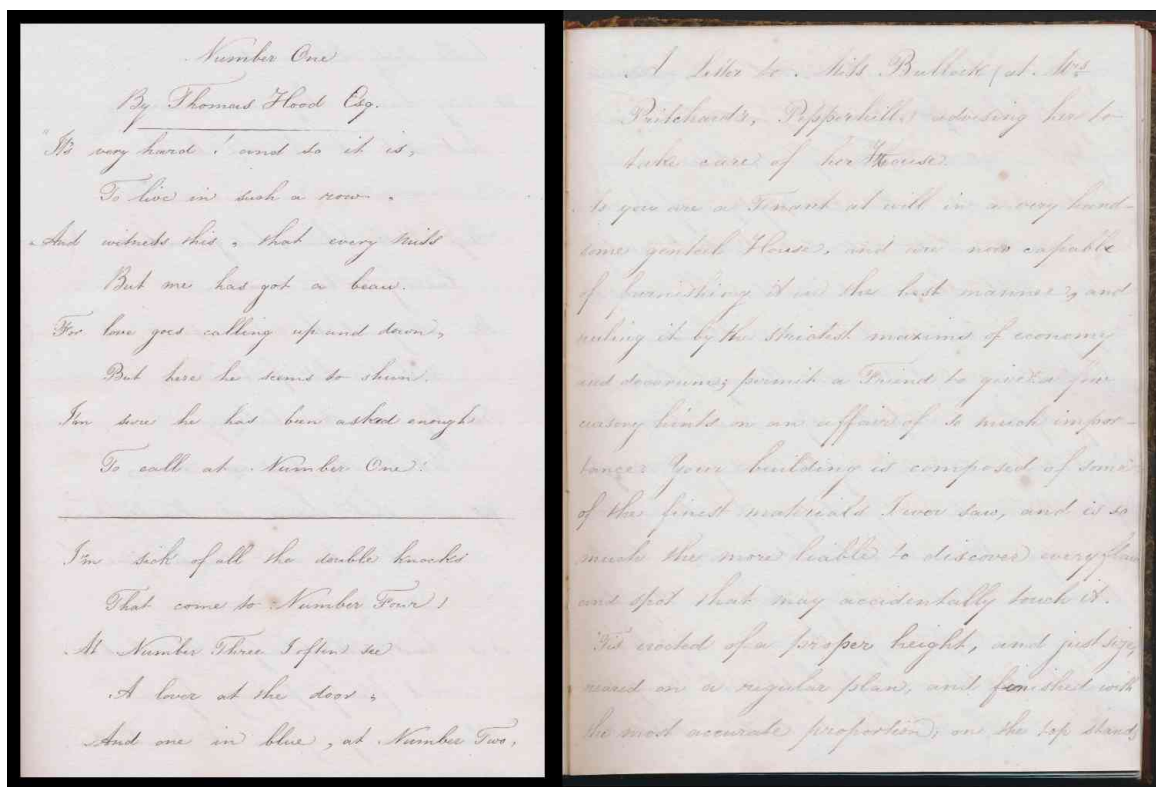 Number One
By Thomas Hood Esq.
"It's very hard! and so it is,
To live in such a row.
And witness this, that every Miss
But me has got a beau.
For love goes calling up and down,
But here he seems to shun.
I'm sure he has been asked enough
To call at Number One!
I'm sick of all the double knocks
That come to Number Four!
At Number Three I often see
A lover at the door,
And one in blue, at Number Two,
A Letter to Miss Bullock (at Mrs
Pritchard's, Pepperhill,) advising her to
take care of her House
As you are a Tenant at will in a very hand-
some genteel House, and are now capable
of furnishing it in the best manner, and
ruling it by the strictest maxims of economy
and decorum; permit a Friend to give a few
cursory hints in an affair of so much impor-
tance. Your building is composed of some
of the finest materials I ever saw, and is so
much the more liable to discover every flaw
and spot that may accidentally touch it.
'Tis erected of a proper height, and just size,
reared on a regular plan, and finished with
the most accurate proportion; on the top stands